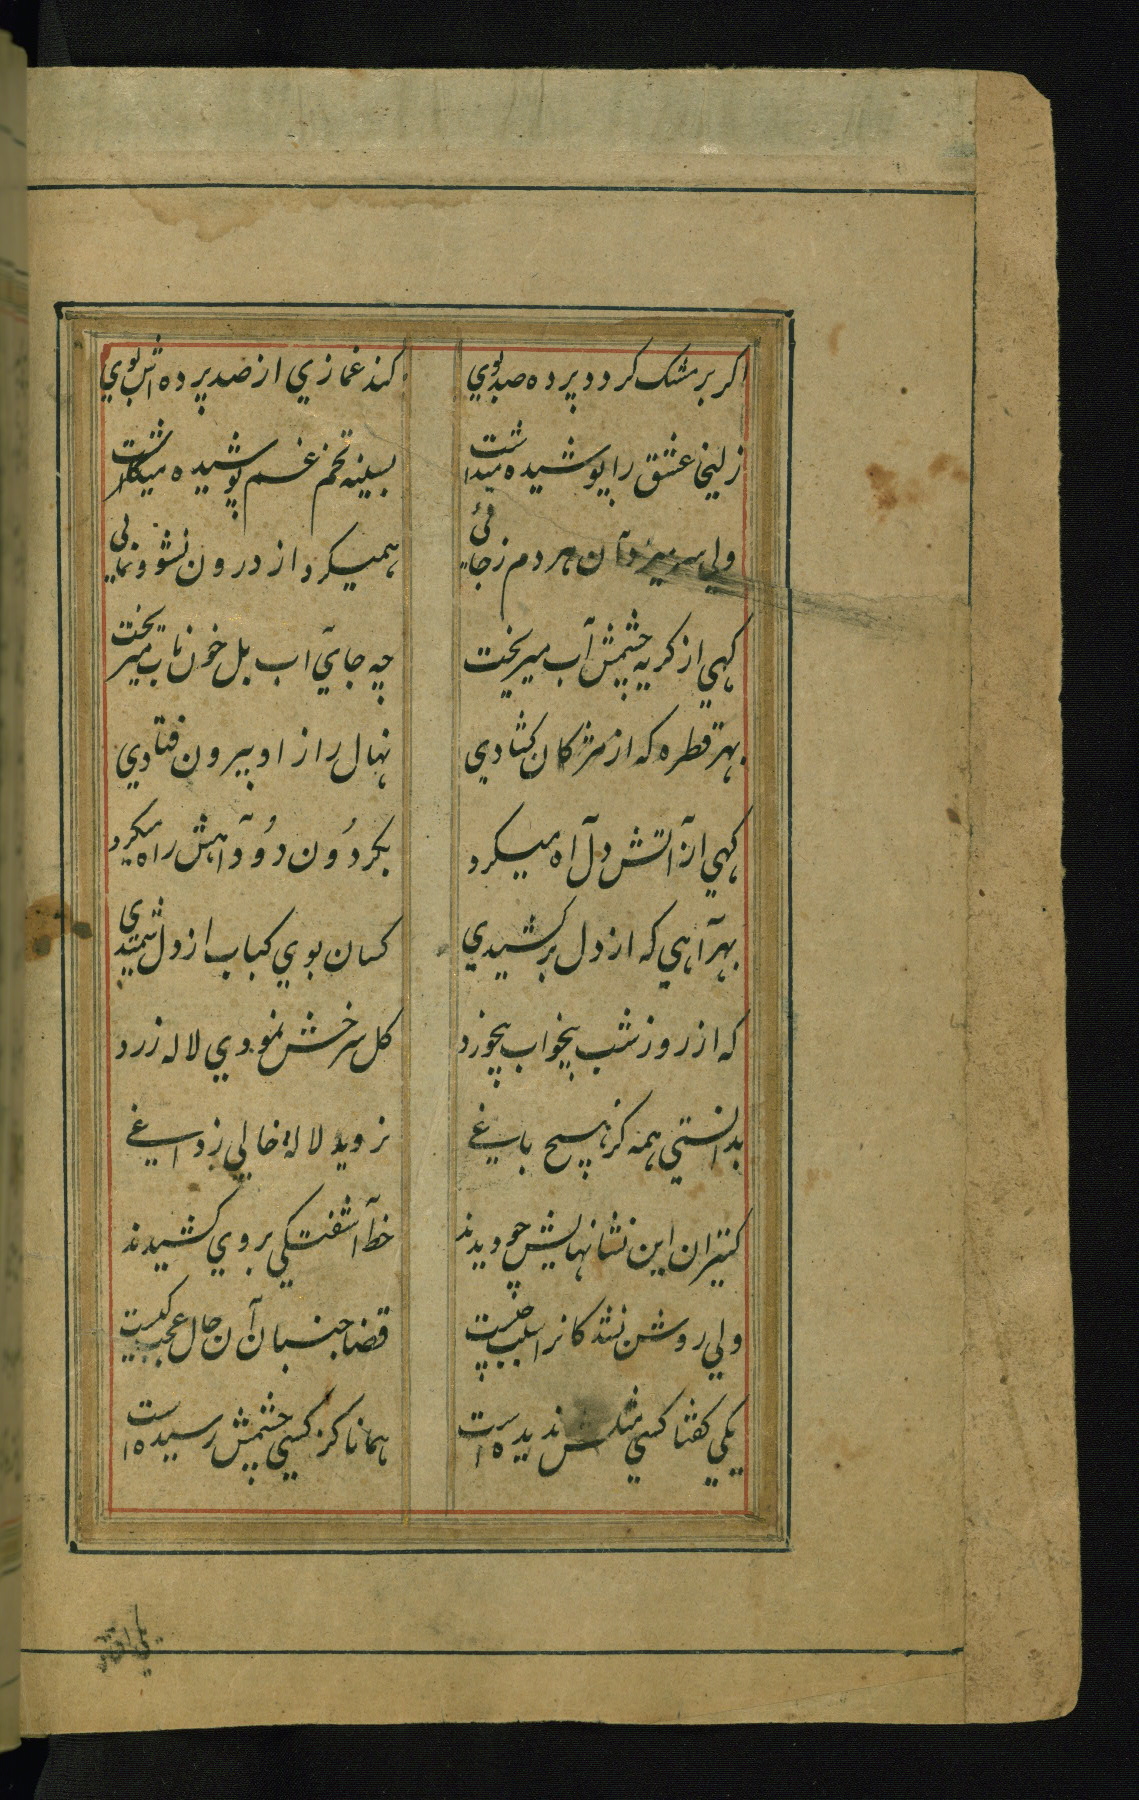 اکر بر مشک کردد پرده صدتوي کند غمازي از صد پرده اش بوي
زلیخا عشق را پوشیده میداشت بسینه تخم غم پوشیده میکاشت
ولي سر میزد آن هر دم زجائی همیکرد از درون نشو و نمایی
کهي از کریه چشمش آب میریخت چه جاي آب بل خون ناب میریخت
بهر قطره که از مژکان کشادي نهال راز او بیرون فتادي
کهي از آتش دل آه میکرد بکردون دود آهش راه میکرد
بهر آهي که از دل برکشیدي کسان بوي کباب از دل شمیدي
که از روز شب بیخواب بیخورد کل سرخش نمودي لاله زرد
بدانستي همه کز هیچ باغي نروید لاله خالي ز داغي
کنیزان این نشانهایش چو دیدند خط آشفتکي بروي کشیدند
ولي روشن نشد کانرا سبب چیست قضا جنبان آن حال عجب کیست
یکي کفتا کسي ندیده است همانا کز کسي چشمش رسیده است